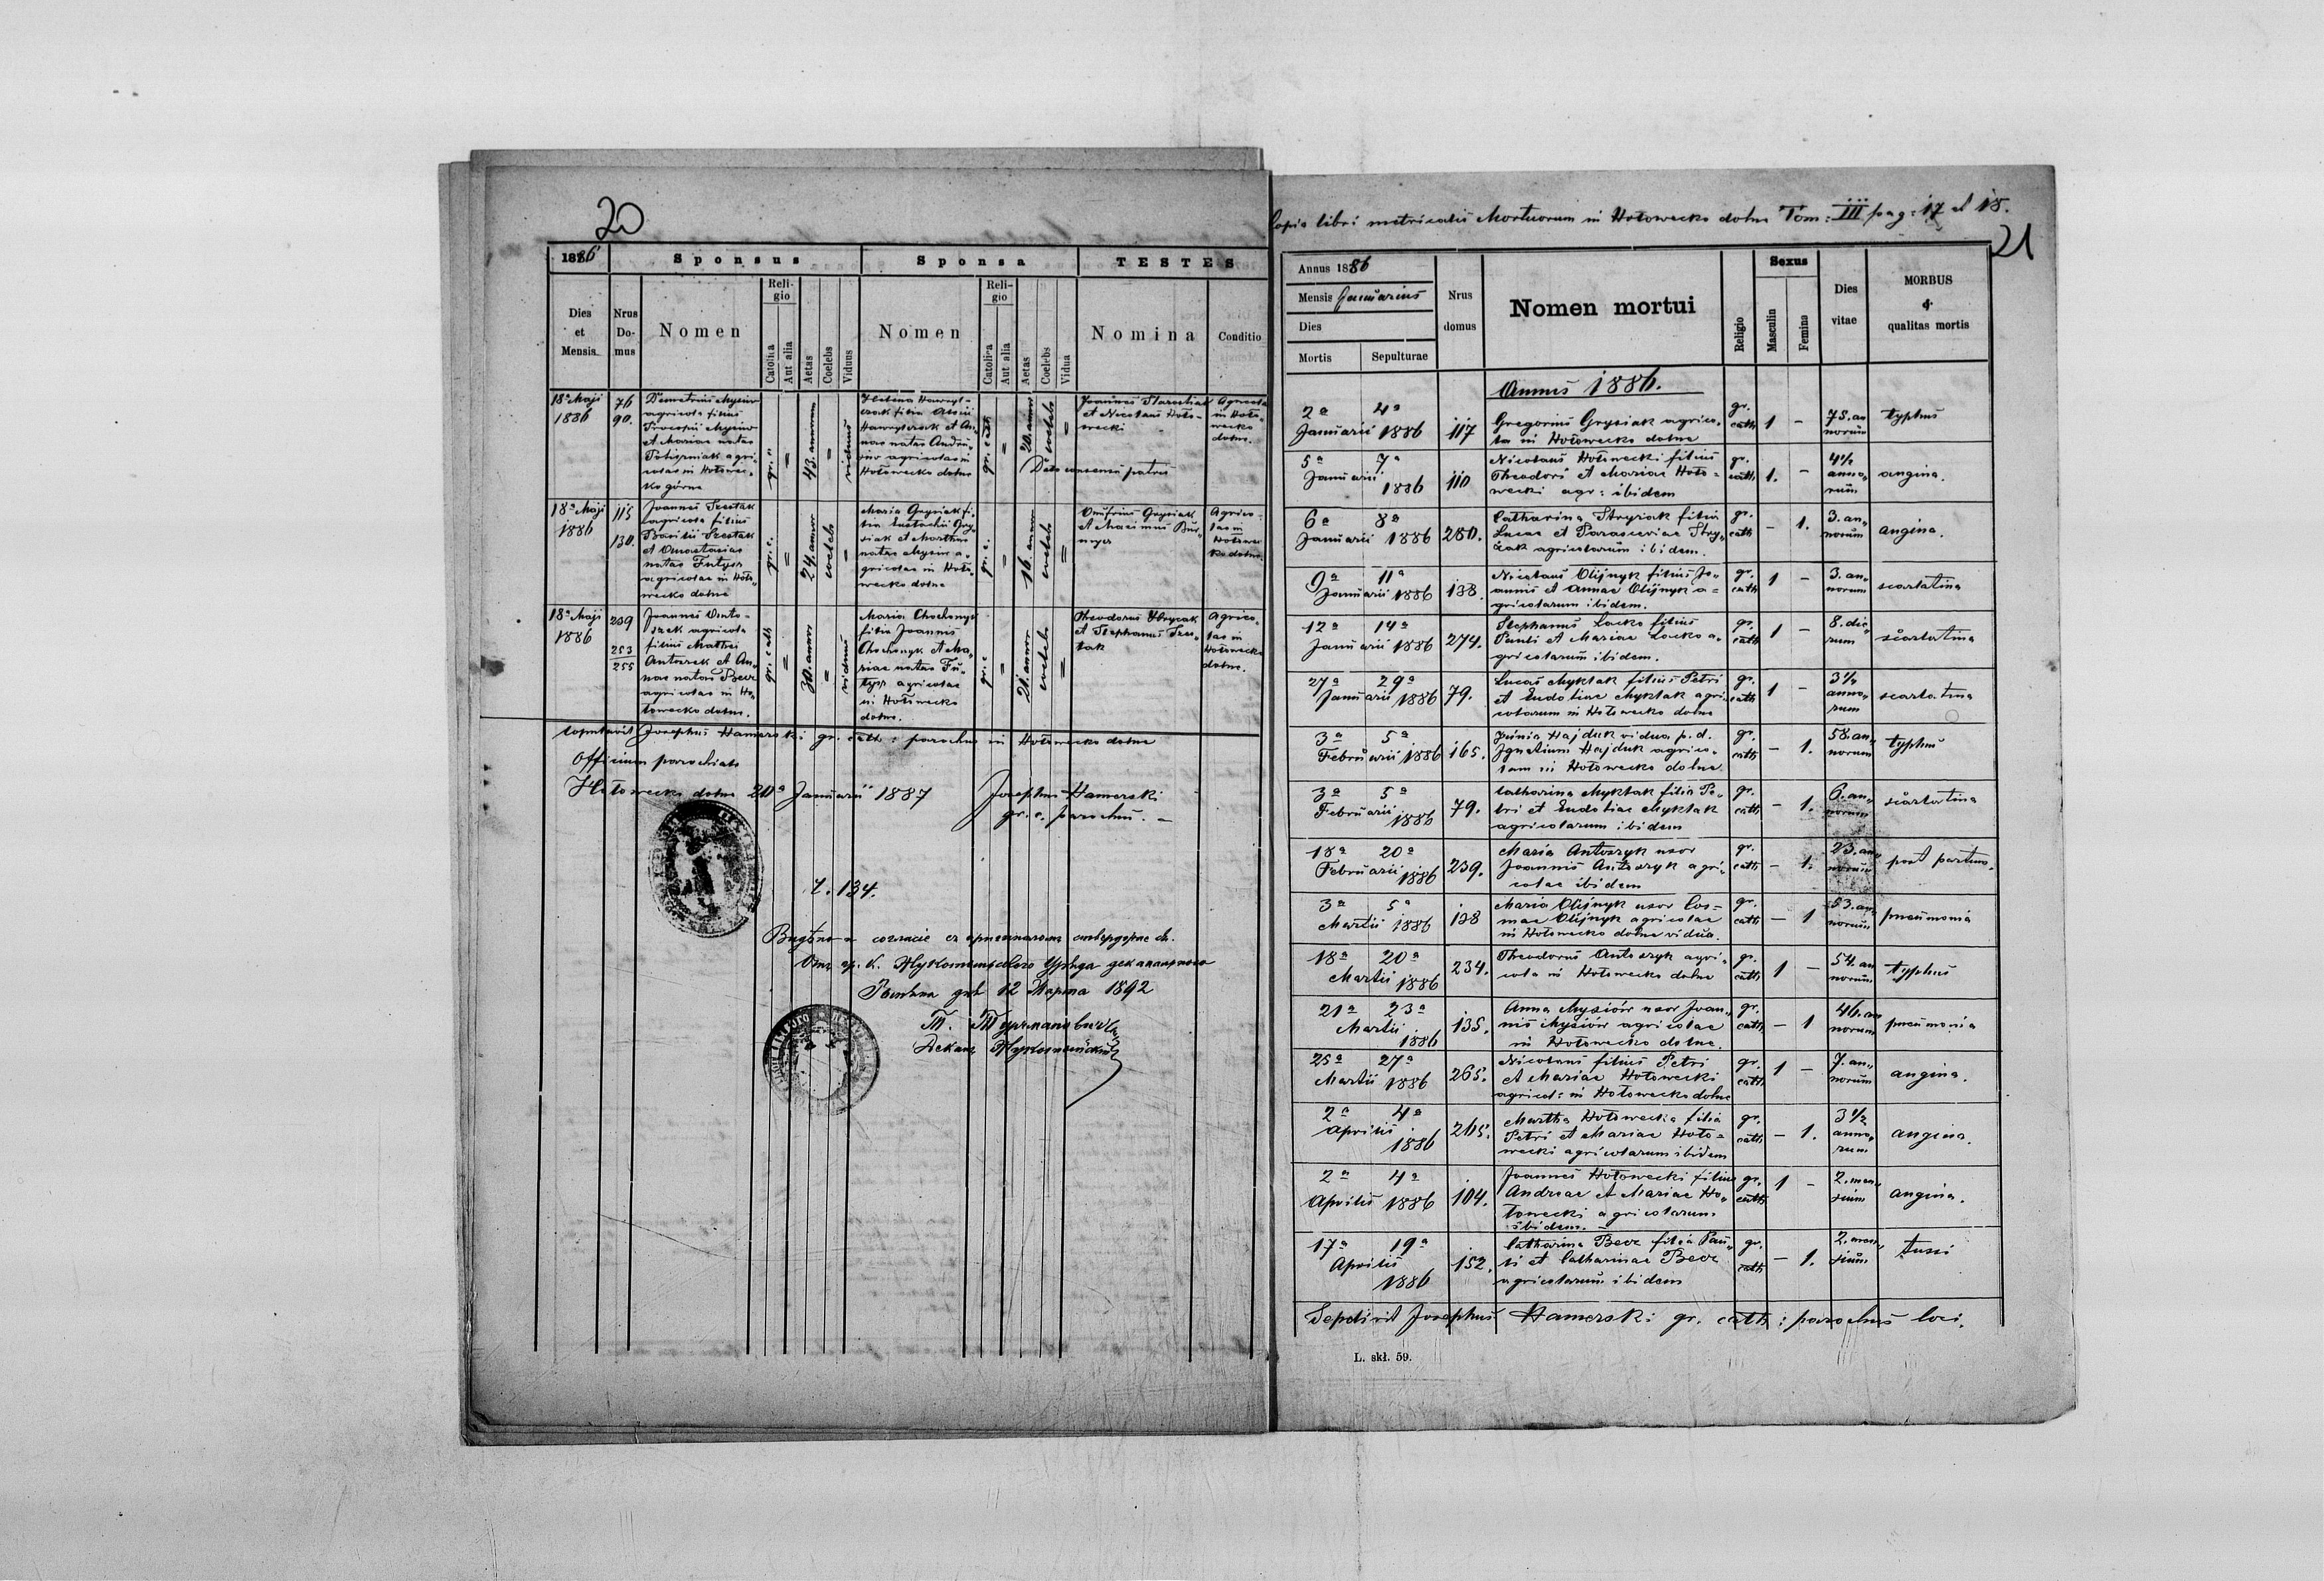 20
1886
Sponsus
Sponsa
TESTES
Dies et Mensis
Nrus Domus
Nomen
Religio
Catolica
Aut alia
Aetas
Coelebs
Viduus
Nomen
Religio
Catolica
Aut alia
Aetas
Coelebs
Vidua
Nomina
Conditio
18ª Maji
1886
76
90.
Demetrius Mysiow
agricola filius
Procopii Mysiow
et Mariae natae
agri„
colae in Hołowec„
ko górne
gr. "
=
43. annorum
=
viduus
Helena Hawryl-
czak filia
Hawrylczak et An„
nae natae
agricolae in
Hołowecko dolne
gr. cath
=
20. annor
coelebs
=
Dato consensu patris
Joannes
et Nicolaus Hoło-
wecki
Agricola
in Hoło„
wecko
dolne.
18ª Maji
1886
115
130.
Joannes Szestak
agricola filius
Basilii Szestak
et Anastasiae
natae Futyss
agricolae in Hoło„
wecko dolne
gr. c.
=
24. annor
coelebs
=
Maria Grysiak fi„
lia Eustachii Gry„
siak et Marthae
natae Mysiw a„
gricolae in Hoło„
wecko dolne
gr. c.
=
16. annor
coelebs
=
Onufrius Grysiak
et Maximus
Agrico-
lae in
Hołowec
ko dolne.
18ª Maji
1886
239
253
255
Joannes Anto-
szek agricola
filius Mathei
Antoszek et An„
nae natae Becz
agricolae in Ho„
łowecko dolne.
gr. cath
=
30. annor
=
viduus
Maria Chochonyk
filia Joannis
Chochonyk et Ma„
riae natae Fu„
tyss agricolae
in Hołowecko
dolne.
gr. c
=
21. annor
coelebs
=
Theodorus
et Stephanus Szes„
tak
Agrico„
lae in
Hołowecko
dolne.
Copulavit Josephus Hamerski gr. cath: parochus in Hołowecko dolne
Officium parochiale
Hołowecko dolne 20ª Januarii 1887
Josephus Hamerski
gr. c. parochus. –
134.
12 Марта 1892
Copia libri metricalis Mortuorum in Hołowecko dolne Tom: III pag: 17 et 18.
21
Annus 1886
Mensis Januarius
Dies
Mortis
Sepulturae
Nrus domus
Nomen mortui
Religio
Sexus
Masculin
Femina
Dies vitae
MORBUS
&
qualitas mortis
Annus 1886.
2ª 4ª
Januarii 1886 117
Gregorius Grysiak agrico„
la in Hołowecko dolne
gr. cath 1 – 75. an norum typhus
5ª 7ª
Januarii 1886 110
Nicolaus Hołowecki filius
Theodori et Mariae Hoło=
wecki agr: ibidem
gr. cath 1. – 4½ anno„ rum angina.
6ª 8ª
Januarii 1886 280.
Catharina Stryzak filia
Lucae et Parasceviae Stry„
zak agricolarum ibidem.
gr. cath – 1. 3. an„ norum angina.
9ª 11ª
Januarii 1886 138.
Nicolaus Olijnyk filius Jo„
annis et Annae Olijnyk a=
gricolarum ibidem.
gr. cath 1 – 3. an„ norum scarlatina
12ª 14ª
Januarii 1886 274.
Stephanus Lacko filius
Pauli et Mariae Lacko a„
gricolarum ibidem.
gr. cath 1 – 8. die„ rum scarlatina
27ª 29ª
Januarii 1886 79.
Lucas Myktak filius Petri
et Eudokiae Myktak agri„
colarum in Hołowecko dolne
gr. cath 1 – 3½ anno„ rum scarlatina
3ª 5ª
Februarii 1886 165.
Hajduk vidua p. d.
Ignatium Hajduk agrico„
lam in Hołowecko dolne.
gr. cath – 1. 58. an„ norum typhus
3ª 5ª
Februarii 1886 79.
Catharina Myktak filia Pe„
tri et Eudokiae Myktak
agricolarum ibidem
gr. cath – 1. 6. an„ norum scarlatina
18ª 20ª
Februarii 1886 239.
Maria Antoszyk uxor
Joannis Antoszyk agri„
colae ibidem
gr. cath – 1. 23. an„ norum post partum.
3ª 5ª
Martii 1886 138
Maria Olijnyk uxor Cos=
mae Olijnyk agricolae
in Hołowecko dolne vidua.
gr. cath – 1 53. an„ norum pneumonia
18ª 20ª
Martii 1886 234.
Theodorus Antoszyk agri„
cola in Hołowecko dolne
gr. cath 1 – 54. an norum typhus
21ª 23ª
Martii 1886 135.
Anna Mysiów uxor Joan„
nis Mysiów agricolae
in Hołowecko dolne.
gr. cath – 1 46. an norum pneumonia
25ª 27ª
Martii 1886 265.
Nicolaus filius Petri
et Mariae Hołowecki
agricol: in Hołowecko dolne
gr. cath 1 – 7. an„ norum angina.
2ª 4ª
Aprilis 1886 265.
Martha Hołowecka filia
Petri et Mariae Hoło=
wecki agricolarum ibidem
gr. cath – 1. 3½ anno„ rum angina.
2ª 4ª
Aprilis 1886 104.
Joannes Hołowecki filius
Andreae et Mariae Ho„
łowecki agricolarum
ibidem. –
gr. cath 1 – 2. men„ sium angina.
17ª 19ª
Aprilis 1886 152.
Catharina Becz filia Pau„
li et Catharinae Becz
agricolarum ibidem
gr. cath – 1. 2. men„ sium tussi
Sepelivit Josephus Hamerski gr. cath: parochus loci.
L. skł. 59.